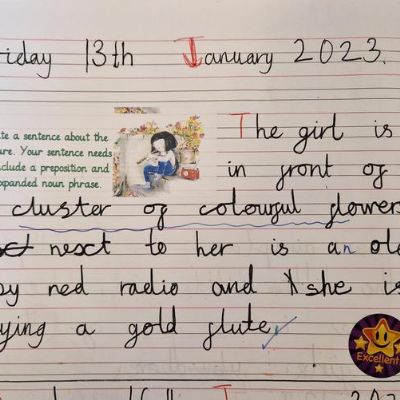 riday 13th January 2023.
te a sentence about the
ure. Your sentence needs
nclude a preposition and
xpanded noun phrase.
The girl is
in front of
cluster of colourful flowers
next to her is an old
red radio and she is
ying a gold flute
Excellent